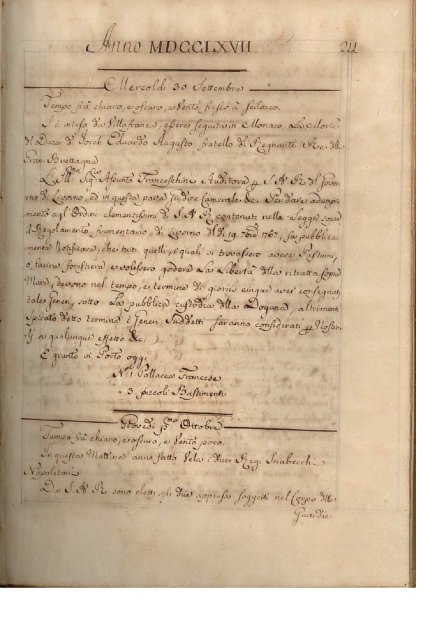 Anno MDCCLXVII. 24
Mercoldi 30 Settembre
Tempo frà chiaro, e oscuro, e vento fresco à Scilocco.
Si è inteso da Villafranca, essere seguita in Monaco, La Morte
del Duca di Jorch Eduardo Augusto fratello del Regnante Rè della
Gran Brettagna
Assunto Franceschini Auditore S A R del Gover
no di Livorno, e in questa parte Giudice Camerale &c. Per dare adempi
mento agl' Ordini clementissimi di S A R contenuti nella Legge sopra
il Regolamento frumentario, di Livorno del dì 19 1767; fa pubblica
mente Notificare, che tutti quelli, e quali si trovassero avere Pastumi,
o farine forestiere, e volessero godere La Libertà della ritratta sopra
Mare, devono nel tempo, e termine di giorni cinque aver consegnato
tale Generi, sotto La pubblica custodia della Dogana, altrimenti
spirato detto termine i Generi suddetti saranno considerati Nostra
li a qualunque effetto &c.
E giunto in Porto oggi
N.° 1 Pollacca Francese
3 piccoli Bastimenti
Giovedi p.mo Ottobre
Tempo frà chiaro, e oscuro, e vento poco.
In questa Mattina anno fatto Vela i due Regi Sciabecchi
Napoletani
Da S A R sono eletti gli due appresso soggetti nel Corpo delle
Guardie